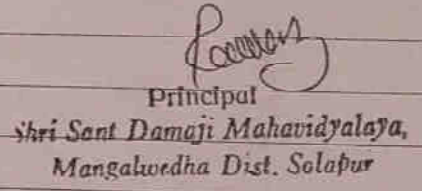 Principal
Shri Sant Damaji Mahavidyalaya,
Mangalwedha Dist. Solapur